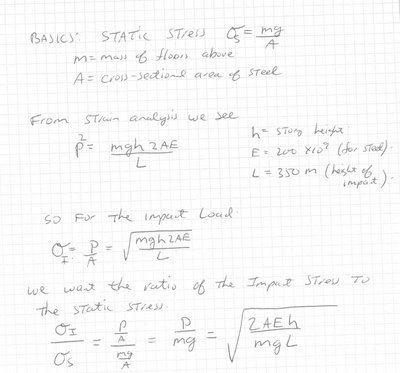 BASICS: STATIC STRESS σ_S = mg/A
m = mass of floors above
A = cross-sectional area of steel
From Strain analysis we see
P² = mgh2AE/L
h = story height
E = 200 x10⁹ (for steel).
L = 350 m (height of
impact).
SO FOR The Impact Load.
σ_I = P/A = √(mgh2AE/L)
We want the ratio of the Impact Stress To
the static stress.
σ_I/σ_S = (P/A)/(mg/A) = P/mg = √(2AEh/mgL)